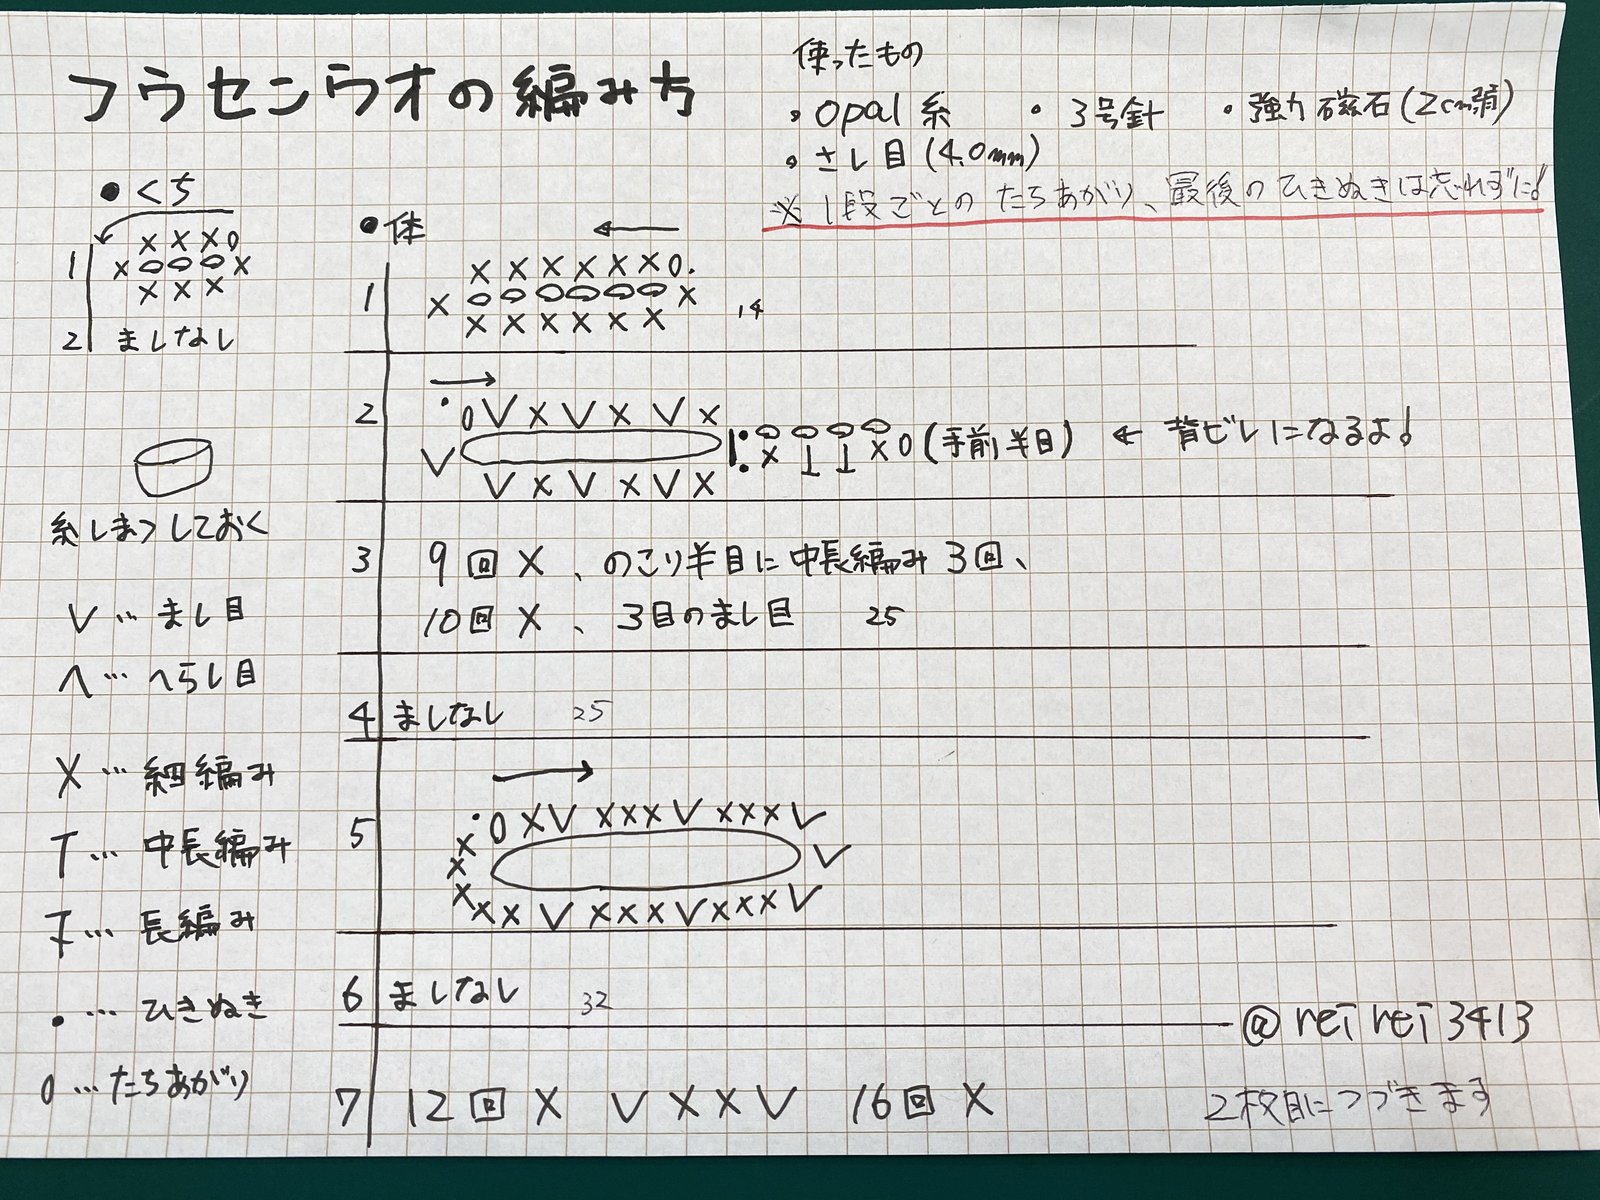 フウセンウオの編み方
使ったもの
・opal糸 ・3号針 ・強力磁石(2cm弱)
・さし目(4.0mm)
※1段ごとのたちあがり、最後のひきぬきは忘れずに!
●くち
X X X 0
1 X 0 0 0 X
X X X
2 ましなし
糸しまつしておく
V…まし目
Λ…へらし目
X…細編み
T…中長編み
Ŧ…長編み
●…ひきぬき
0…たちあがり
●体
←
X X X X X X 0 .
1 X 0 0 0 0 0 0 X 14
X X X X X X
→
2 . 0 V X V X V X
V X T T X 0 (手前半目) ← 背ビレになるよ!
V X V X V X
3 9回X、のこり半目に中長編み3回、
10回X、3目のまし目 25
4 ましなし 25
→
5 . 0 X V X X X V X X X V
X X X V
X X V X X X V X X X V
6 ましなし 32
7 12回X V X X V 16回X
@reirei3413
2枚目につづきます